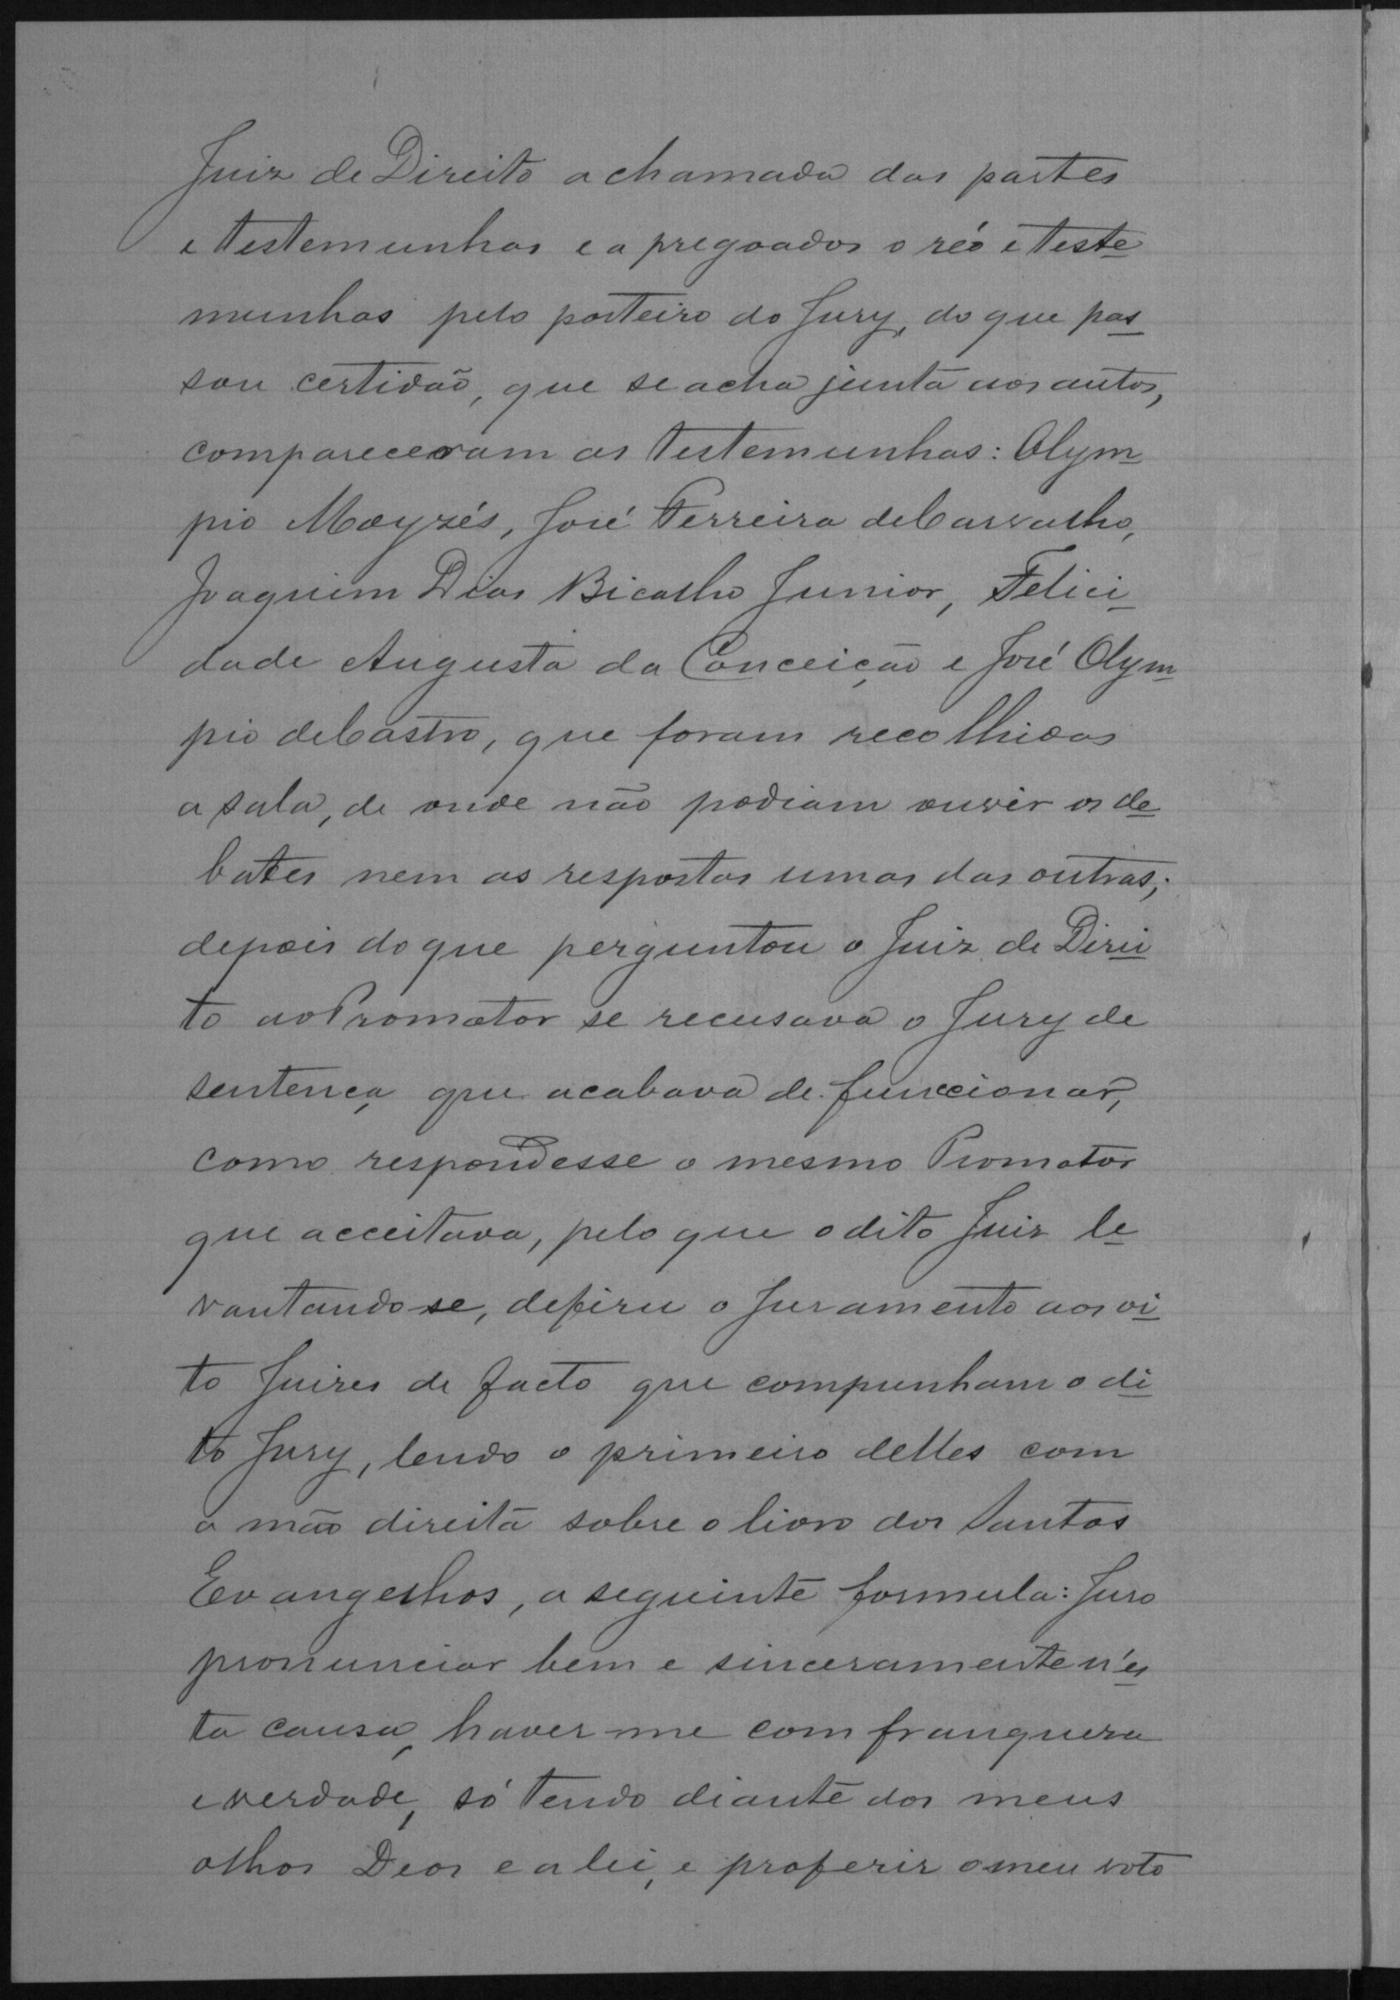 Juiz de Direito a chamada das partes
e testemunhas e apregoados o réo e teste
munhas pelo porteiro do Jury, do que pas
sou certidão, que se acha junta aos autos,
compareceram as testemunhas: Olym
pio Moyzés, José Ferreira de Carvalho,
Joaquim Dias Bicalho Junior, Felici
dade Augusta da Conceição e José Olym
pio de Castro, que foram recolhidas
a sala, de onde não podiam ouvir os de
bates nem as respostas umas das outras;
depois do que perguntou o Juiz de Direi
to ao Promotor se recusava o Jury de
sentença que acabava de funccionar,
como respondesse o mesmo Promotor
que acceitava, pelo que o dito Juiz le
vantando-se, defiriu o Juramento aos oi
to Juizes de facto que compunham o di
to Jury, lendo o primeiro delles com
a mão direita sobre o livro dos Santos
Evangelhos, a seguinte formula: Juro
pronunciar bem e sinceramente n'es
ta causa, haver-me com franqueza
e verdade, só tendo diante dos meus
olhos Deos e a lei, e proferir o meu voto